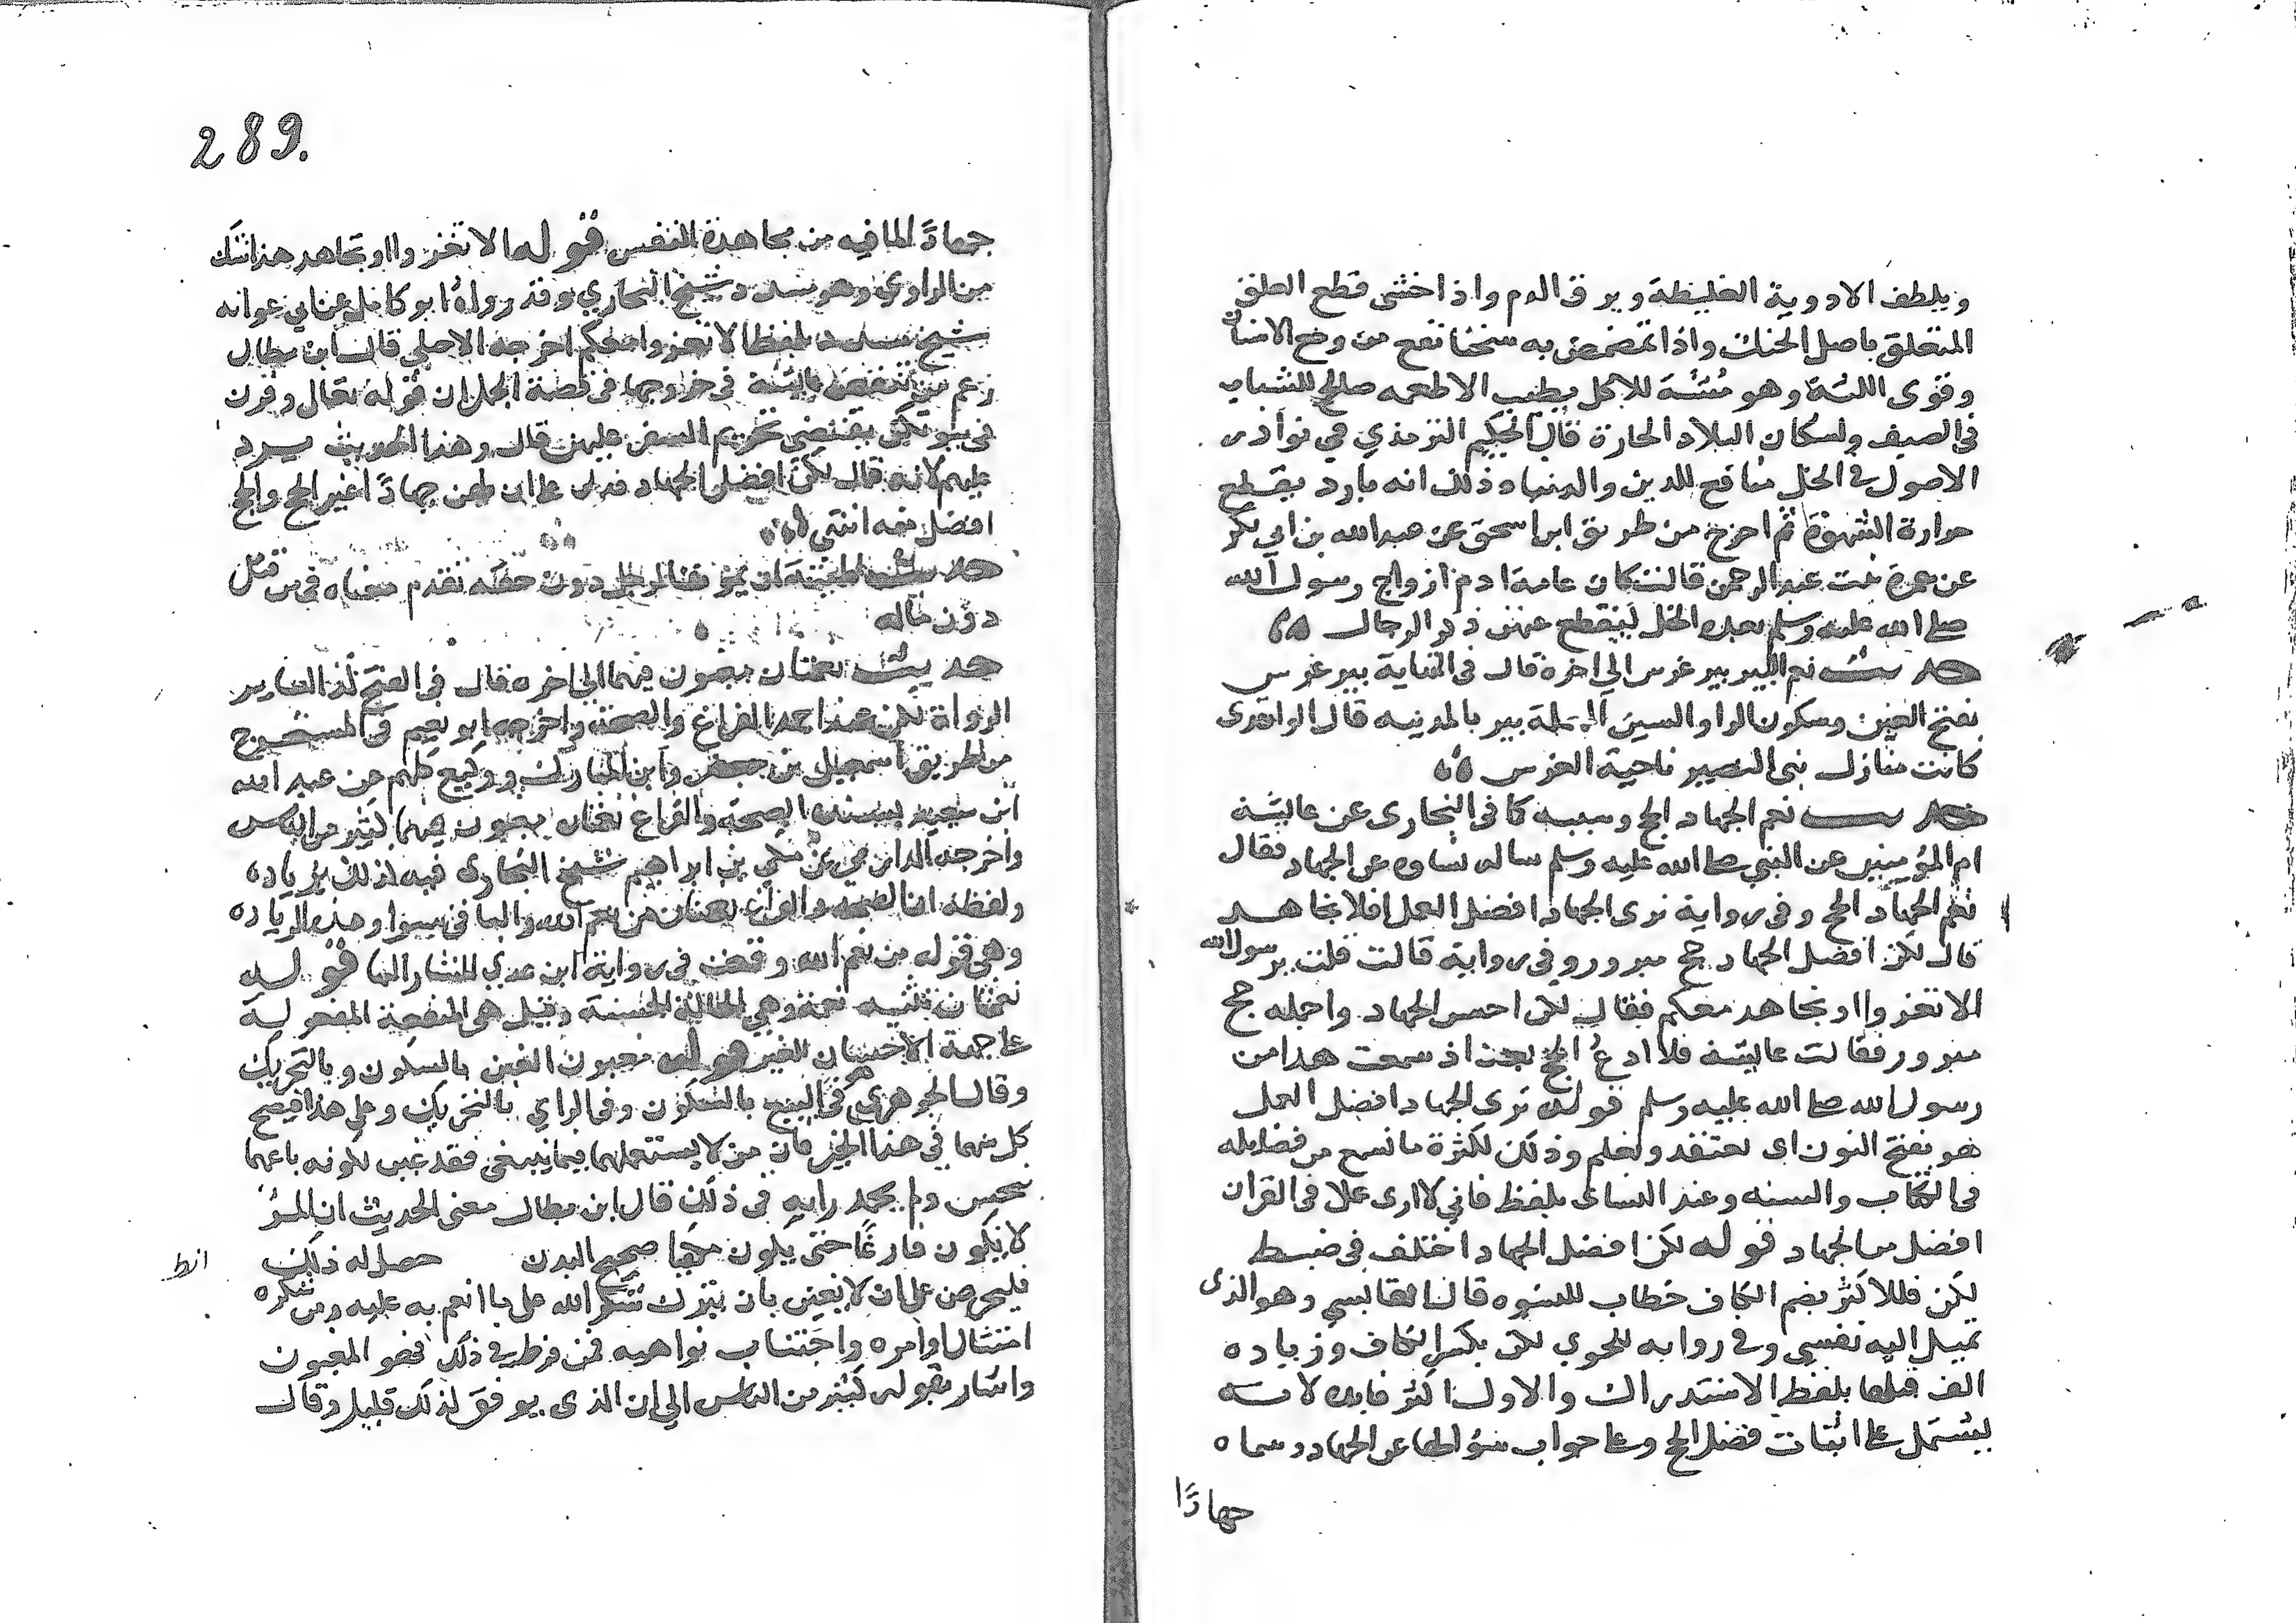 ويلطف الادوية الغليظة ويرق الدم واذا احتسى قطع العلق
المتعلق باصل الحنك واذا تمضمض به سخنا نفع من وجع الاسنان
وقوى اللثة وهو مشه للاكل يطيب الاطعمه صالح للشباب
فى الصيف ولسكان البلاد الحارة قال الحكيم الترمذي في نوادر
الاصول في الخل منافع للدين والدنيا وذلك انه بارد يقطع
حرارة الشهوة ثم اخرج من طريق ابن اسحق عن عبد الله بن ابي بكر
عن عمرة بنت عبد الرحمن قالت كان عامة ادم ازواج رسول الله
صلى الله عليه وسلم بعده الخل ليقطع عنهن ذكر الرجال
حديث نعم البير بير غرس الى اخره قال فى النهاية بير غرس
بفتح الغين وسكون الرا والسين المهملة بير بالمدينه قال الواقدى
كانت منازل بنى النضير ناحية الغرس
حديث نعم الجهاد الحج وسببه كما فى البخارى عن عايشة
ام المؤمنين عن النبي صلى الله عليه وسلم ساله نساوه عن الجهاد فقال
نعم الجهاد الحج وفى رواية نرى الجهاد افضل العمل افلا نجاهد
قال لكن افضل الجهاد حج مبرور وفى رواية قالت قلت يرسول الله
الا نغزوا او نجاهد معكم فقال لكن احسن الجهاد واجمله حج
مبرور فقالت عايشة فلا ادع الحج بعد اذ سمعت هذا من
رسول الله صلى الله عليه وسلم قوله نرى الجهاد افضل العمل
هو بفتح النون اى نعتقد ونعلم وذلك لكثرة ما نسمع من فضايله
فى الكتاب والسنه وعند النساى بلفظ فاني لا ارى عملا فى القران
افضل من الجهاد قوله لكن افضل الجهاد اختلف فى ضبط
لكن فللاكثر بضم الكاف خطاب للنسوه قال القابسي وهو الذى
تميل اليه نفسي وفي روايه للحموي لكن بكسر الكاف وزياده
الف قبلها بلفظ الاستدراك والاول اكثر فايده لانه
يشتمل على اثبات فضل الحج وعلى جواب سؤالها عن الجهاد وسماه
جهادًا
289.
جهادًا لما فيه من مجاهدة النفس قوله الا نغزوا او نجاهد هذا شك
من الراوي وهو مسدد شيخ البخاري وقد رواه ابو كامل عن ابي عوانه
شيخ مسدد بلفظ الا نغزوا معكم اخرجه الاسماعيلي قال ابن بطال
زعم من ينقص عايشة في خروجها فى قصة الجمل ان قوله تعالى وقرن
فى بيوتكن يقتضي تحريم السفر عليهن قال وهذا الحديث يرد
عليهم لانه قال لكن افضل الجهاد فدل على ان لهن جهادًا غير الحج والحج
افضل منه انتهى
حديث تقدم معناه فى من قتل
دون ماله
حديث نعمتان مغبون فيهما الى اخره قال فى الفتح كذا لساير
الرواة لكن عند احمد الفراغ والصحة واخرجه ابو نعيم في المستخرج
من طريق اسمعيل بن جعفر وابن المبارك ووكيع كلهم عن عبد الله
ابن سعيد بسنده الصحة والفراغ نعمتان مغبون فيهما كثير من الناس
واخرجه الدارمي عن مكي بن ابراهيم شيخ البخارى فيه كذلك بزياده
ولفظه ان الصحة والفراغ نعمتان من نعم الله والباقى سوا وهذه الزياده
وهي قوله من نعم الله وقعت فى رواية ابن عدي المشار اليها قوله
نعمتان تثنيه نعمة وهي الحالة الحسنة وقيل هى المنفعة المفعولة
على جهة الاحسان للغير قوله مغبون الغبن بالسكون وبالتحريك
وقال الجوهري هو في البيع بالسكون وفى الراي بالتحريك وعلى هذا فيصح
كل منهما في هذا الخبر فان من لا يستعملهما فيما ينبغى فقد غبن لكونه باعهما
ببخس ولم يحمد رايه فى ذلك قال ابن بطال معنى الحديث ان المرء
لا يكون فارغًا حتى يكون مكفيا صحيح البدن حصل له ذلك
فليحرص على ان لا يغبن بان يترك شكر الله على ما انعم به عليه ومن شكره
امتثال اوامره واجتناب نواهيه فمن فرط في ذلك فهو المغبون
واشار بقوله كثير من الناس الى ان الذى يوفق لذلك قليل وقال